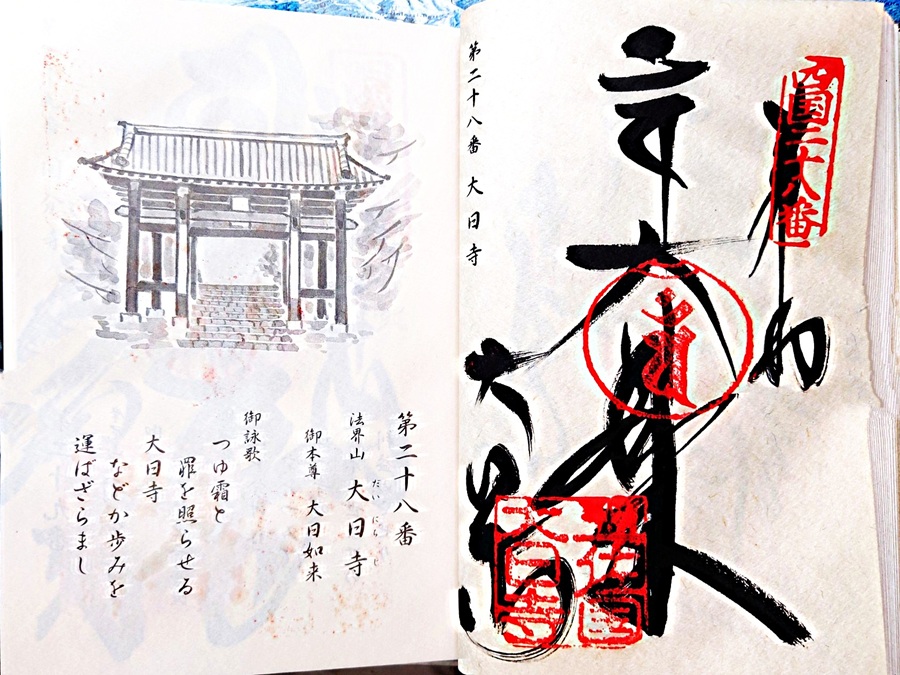 四国二十八番
奉納
大日寺
大日寺
第二十八番 大日寺
第二十八番
法界山 大日寺
だい にち じ
御本尊 大日如来
御詠歌
つゆ霜と
罪を照らせる
大日寺
などか歩みを
運ばざらまし